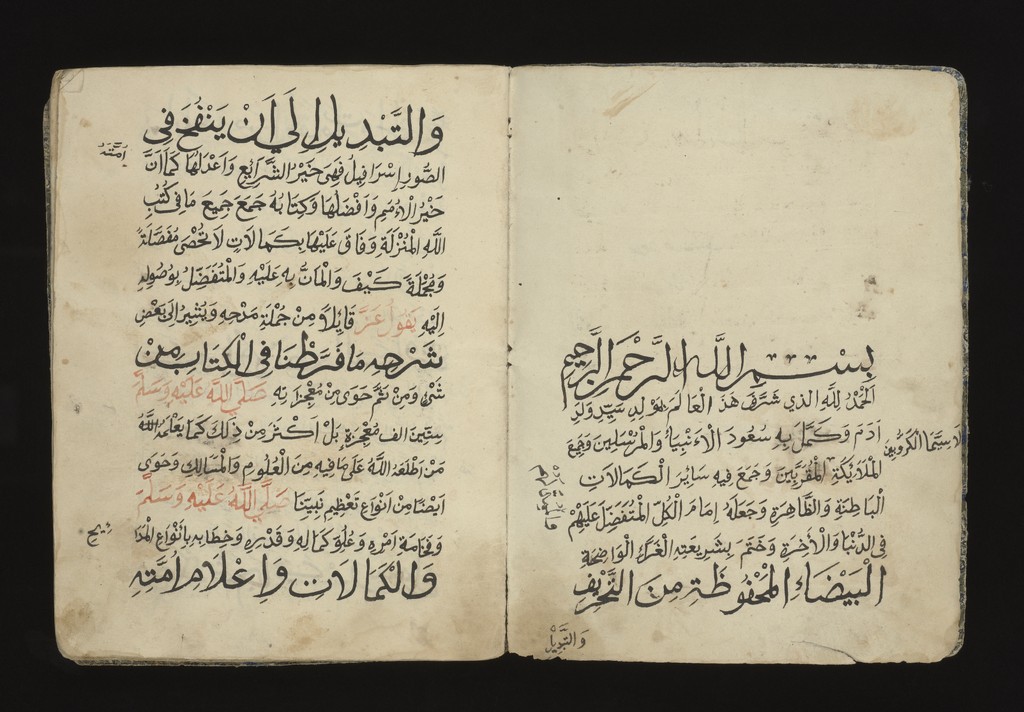 بسم الله الرحمن الرحيم
الحمد لله الذي شرف هذ العالم بمولد سيد ولد
آدم وكمل به سعود الأنبياء والمرسلين وجميع
لا سيما الكروبيين
الملايكة المقربين وجمع فيه ساير الكمالات
الباطنة والظاهرة وجعله إمام الكل المتفضل عليهم
في الدنيا والأخرة وختم بشريعته الغراء الواضحة
البيضاء المحفوظة من التحريف
والتبديل
والتبديل الي ان ينفخ في
الصور إسرافيل فهي خير الشرايع واعدلها كما ان
امته
خير الأمم وافضلها وكتابه جمع جميع ما في كتب
الله المنزلة وفاق عليها بكمالات لا تحصى مفصلة
ومجملة كيف والمان به عليه والمتفضل بوصوله
اليه يقول عز قايلا من جملة مدحه ويشير الى بعض
شرحه ما فرطنا في الكتاب من
شئ ومن ثم حوى من معجزاته صلى الله عليه وسلم
ستين الف معجزة بل اكثر من ذلك كما يعلمه الله
من اطلعه الله على ما فيه من العلوم والمسالك وحوى
ايضا من انواع تعظيم نبينا صلى الله عليه وسلم
وفخامة امره وعلو كماله وقدره وخطابه بانواع المدا
يح
والكمالات واعلام امته